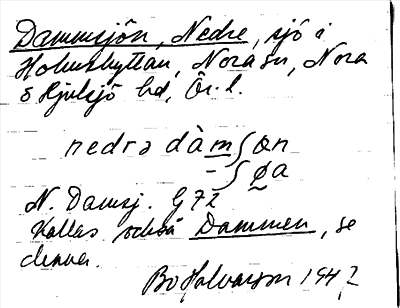 Dammsjön, Nedre, sjö i
Holmshyttan, Nora sn, Nora
o Hjulsjö hd, Ör. l.
nedrə dàmʃøn
-ʃøa
N. Damsj. G 72
Kallas också Dammen, se
denna.
Bo Halvarson 1942